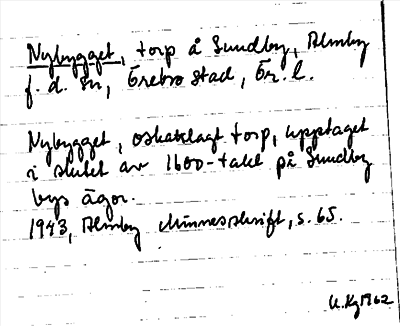 Nybygget, torp å Sundby, Almby
f. d. sn, Örebro stad, Ör. l.
Nybygget, oskattlagt torp, upptaget
i slutet av 1600-talet på Sundby
bys ägor.
1943, Almby Minnesskrift, s. 65.
1962